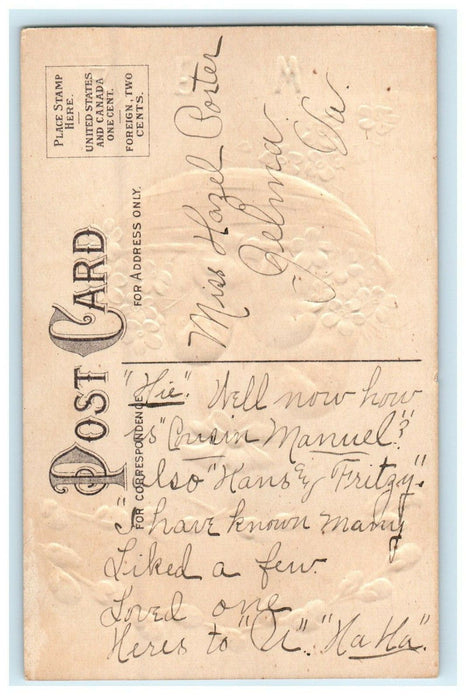 PLACE STAMP
HERE.
UNITED STATES
AND CANADA
ONE CENT.
FOREIGN, TWO
CENTS.
POST CARD
FOR ADDRESS ONLY.
Miss Hazel Porter
Selma
Va.
FOR CORRESPONDENCE
"Hie". Well now how
is "Cousin Manuel"?
Also "Hans & Fritzy".
"I have known many
Liked a few.
Loved one
Heres to "U". "Ha Ha".